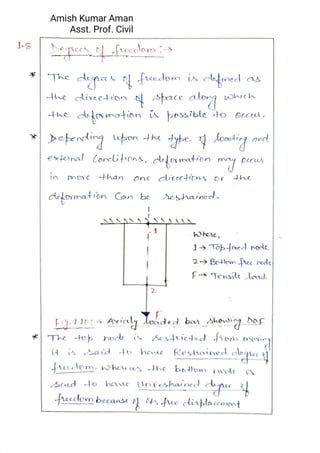 Amish Kumar Aman
Asst. Prof. Civil
1.8 Degrees of freedom:→
* The degrees of freedom is defined as
the direction of space along which
the deformation is possible to occur.
* Depending upon the type of loading and
external conditions, deformation may occur
in more than one directions or the
deformation can be restrained.
1
Where,
1 → Top fixed node
2 → Bottom free node
F → Tensile load.
2
F
Fig. 1.10: → Axially loaded bar showing DOF
* The top node is restricted from moving
it is said to have Restrained degree of
freedom. Whereas the bottom node is
said to have Unrestrained degree of
freedom because of its free displacement